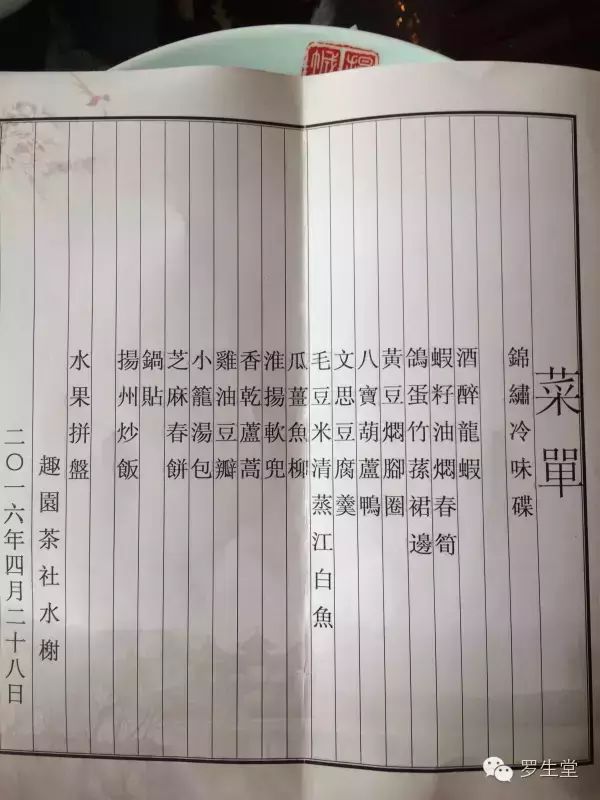 菜單
錦繡冷味碟
酒醉龍蝦
蝦籽油燜春筍
鴿蛋竹蓀裙邊
黃豆燜腳圈
八寶葫蘆鴨
文思豆腐羹
毛豆米清蒸江白魚
瓜薑魚柳
淮揚軟兜
香乾蘆蒿
雞油豆瓣
小籠湯包
芝麻春餅
鍋貼
揚州炒飯
水果拼盤
趣園茶社水榭
二〇一六年四月二十八日
罗生堂